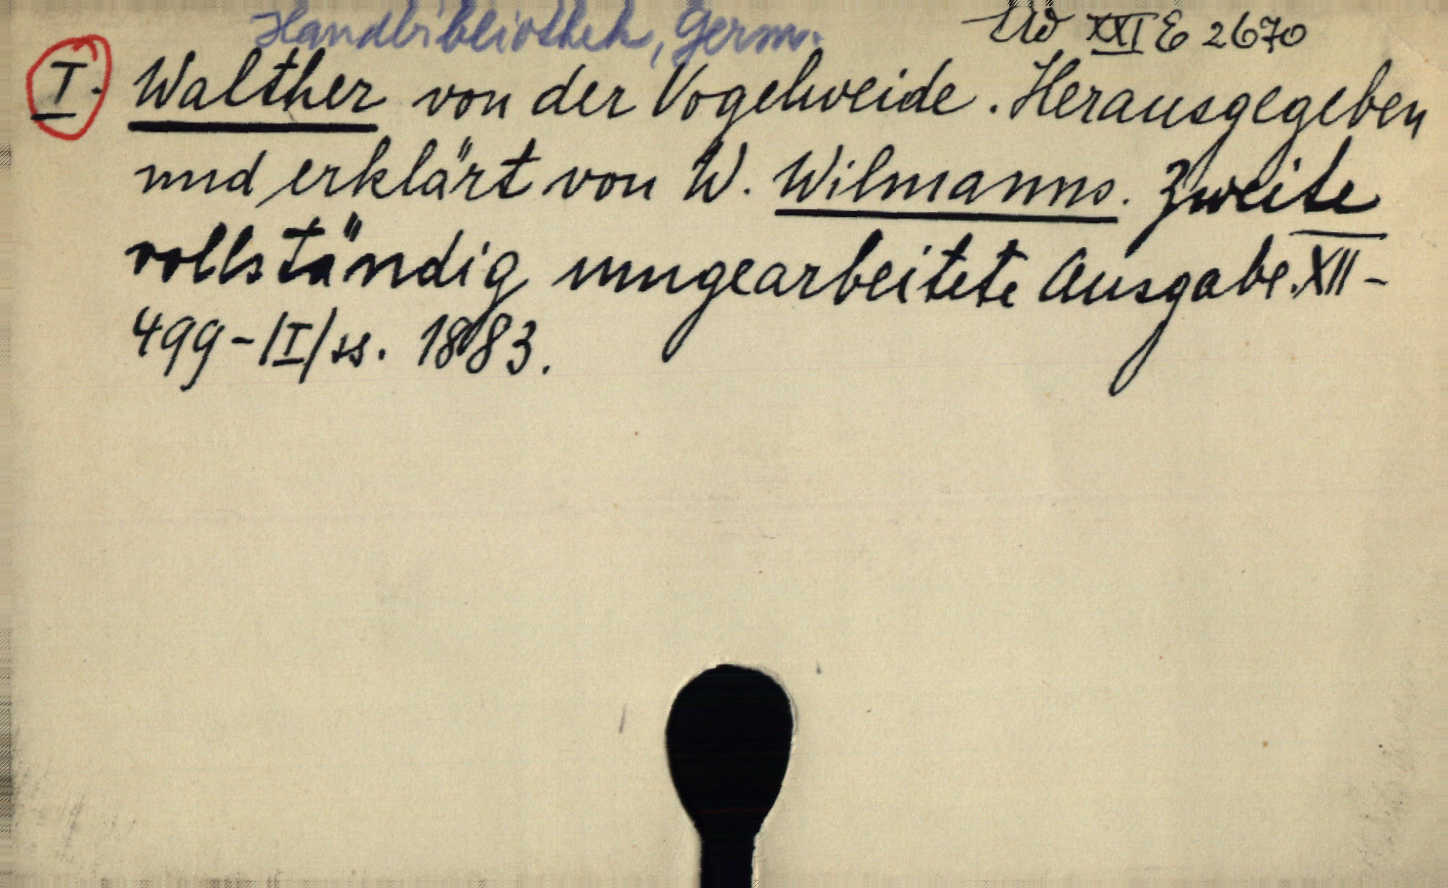 Handbibliothek, Germ.
XXI E 2670
I. Walther von der Vogelweide. Herausgegeben
und erklärt von W. Wilmanns. Zweite
vollständig umgearbeitete Ausgabe. XII-
499-/I/ss. 1883.